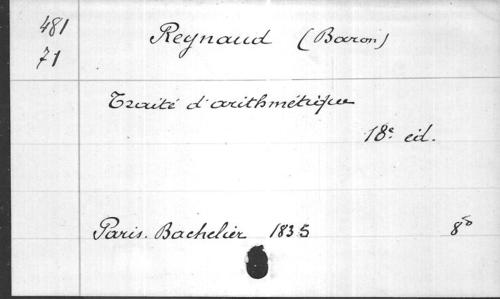 481 Reynaud (Baron)
71
Traité d'arithmétique
18e éd.
Paris. Bachelier 1835 8o